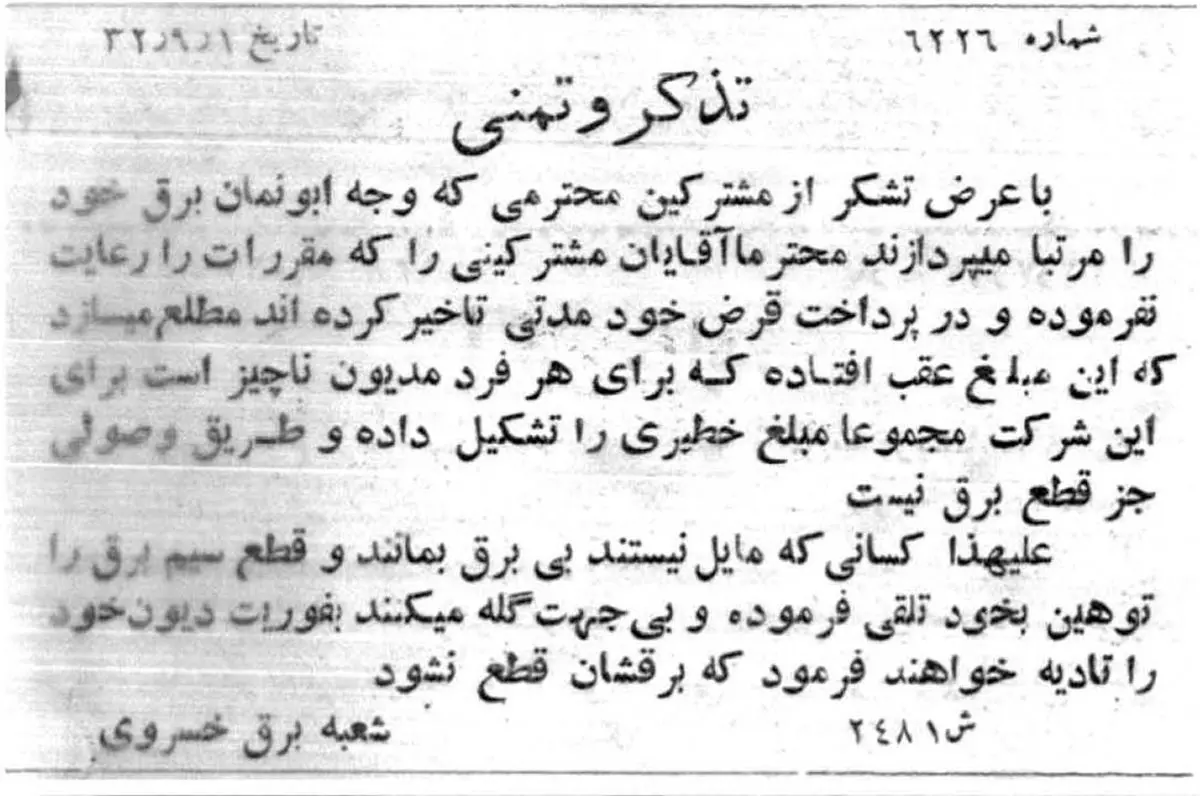 شماره ۶۲۲۶
تاریخ ۳۲٫۹٫۱
تذکر و تمنی
با عرض تشکر از مشترکین محترمی که وجه ابونمان برق خود
را مرتبا میپردازند محترما آقایان مشترکینی را که مقررات را رعایت
نفرموده و در پرداخت قرض خود مدتی تاخیر کرده اند مطلع میسازد
که این مبلغ عقب افتاده که برای هر فرد مدیون ناچیز است برای
این شرکت مجموعا مبلغ خطیری را تشکیل داده و طریق وصولی
جز قطع برق نیست
علیهذا کسانی که مایل نیستند بی برق بمانند و قطع سیم برق را
توهین بخود تلقی فرموده و بی جهت گله میکنند بفوریت دیون خود
را تادیه خواهند فرمود که برقشان قطع نشود
ش ۲۴۸۱
شعبه برق خسروی